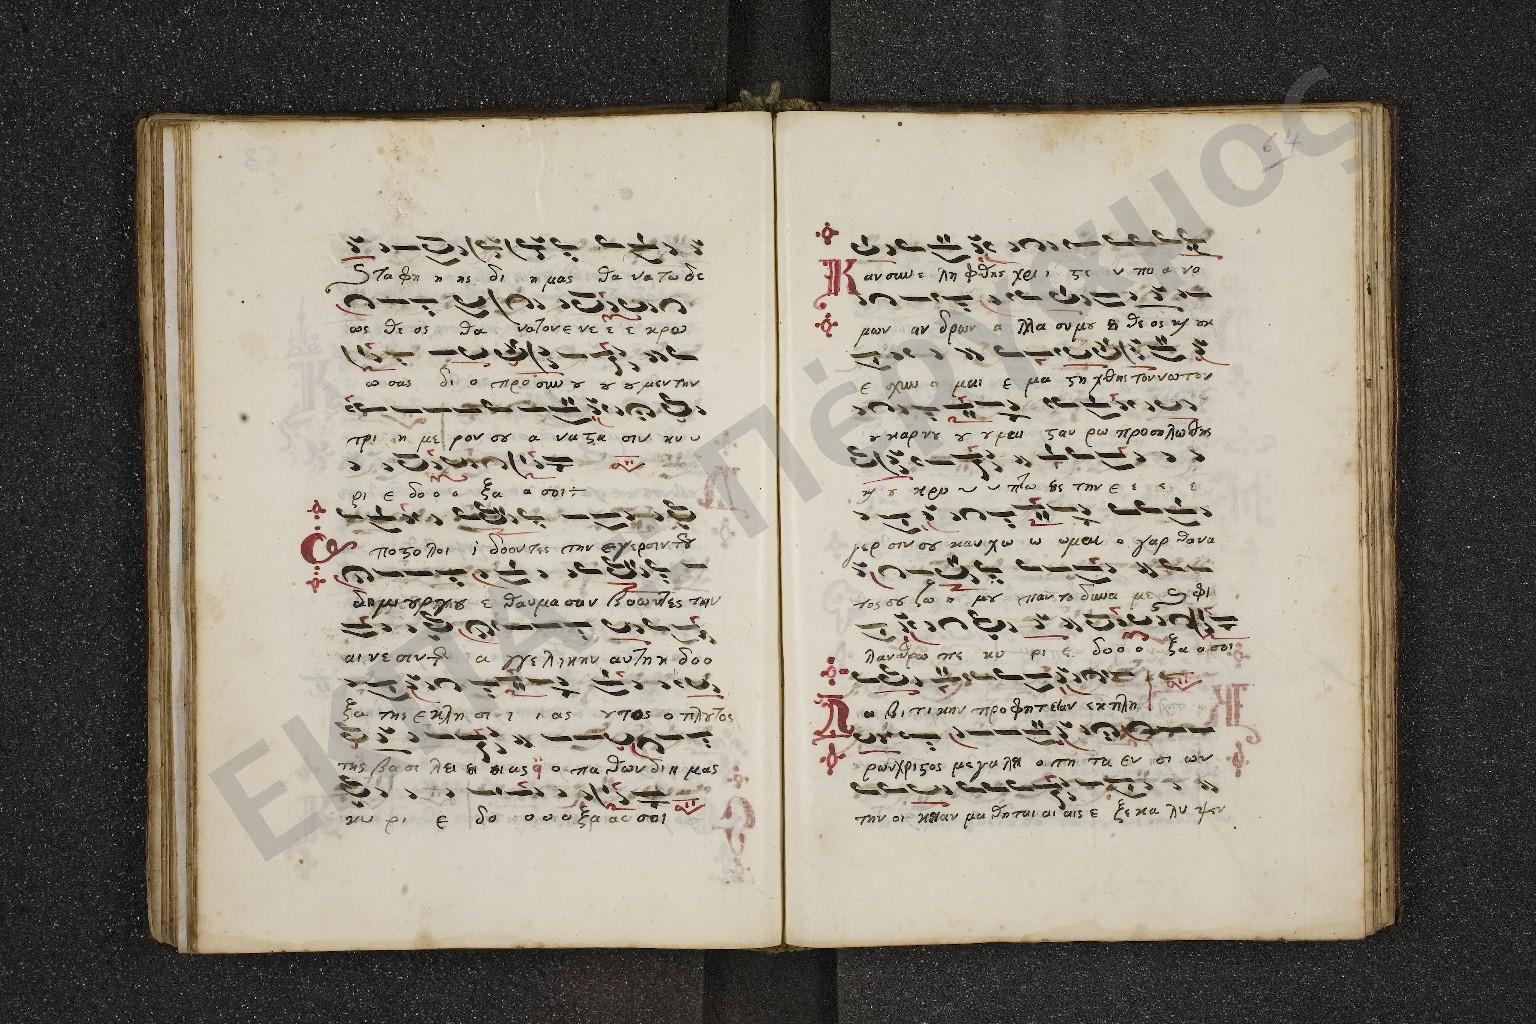 64
Στα φη η ης δι η μας θα να τω δε
ως θε ος θα νατον ε νε ε ε κρω
ω σας δι ο προ σκυν ου ου ου μεν την
τρι η με ρον σου α να στα σιν κυ υ
ρι ε δο ο ο ξα α σοι
ποστολοι ι δοοντες την εγερσιν του
δημιουργου ε θαυμασαν βοωντες την
αι νε σιν την α γγελικην αυτη η δοο
ξα της εκλη σι ι ι ας ουτος ο πλουτος
της βασι λει ει ει ας ο πα θων δι η μας
κυ ρι ε δο ο ο ο ξα α ο σοι
Καν συν ε λη φθης χρι ι στε υ πο α νο
μων αν δρων α λλα συ μου ει θε ος κ ουκ
ε σχυν ο μαι ε μα στι χθης τον νωτον
ου καρνου ου ου μαι σταυ ρω προσηλωθης
κ ου κρυ υ υ πτω εις την ε ε ε ε
γερ σιν σου καυχω ω ωμαι ο γαρ θανα
τος σου ζω η μου παντοδυνα με φι
λανθρω πε κυ ρι ε δο ο ο ξα α σοι
Δα βι τι κην προφητειαν εκ πλη
ρων χριστος μεγαλει ο τη τα εν σι ων
την οι κειαν μα θηται αι αις ε ξε κα λυ ψεν
ΕΚΠΑ - Πέργαμος